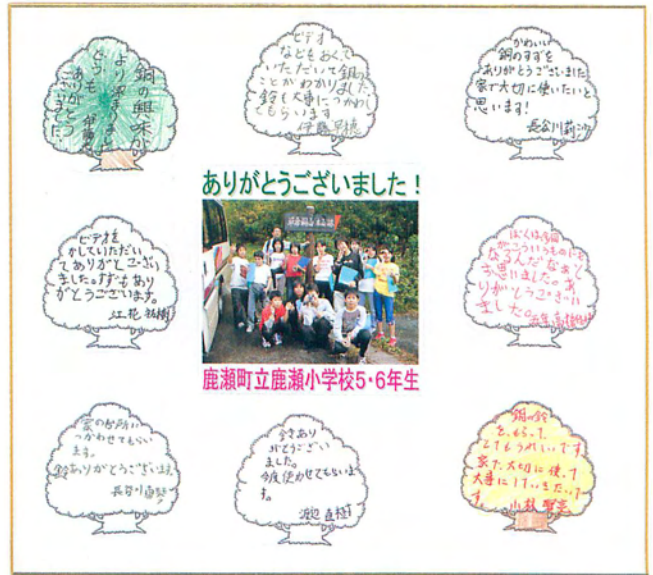 銅の興味が
より深まりました
どうも
ありがとう
ございました。
ビデオ
などもおくって
いただいて銅の
ことがわかりました。
鈴も大事につかわし
てもらいます
伊藤
かわいい
銅のすずを
ありがとうございました
家で大切に使いたいと
思います!
長谷川莉沙
ありがとうございました!
ビデオを
かしていただい
てありがとうござい
ました。すずもあり
がとうございます。
江花 祐樹
ぼくは銅
がこういうものに
なるんだなぁと
思いました。あ
りがとうござい
ました。
五年 高橋
鹿瀬町立鹿瀬小学校5・6年生
家の台所に
つかわせてもらい
ます。
鈴ありがとうございます。
長谷川
鈴あり
がとうござい
ました。
今度使わせてもらいま
す。
渡辺 直樹
銅の鈴
を、もらって
とてもうれしいです
家で大切に使って
大事にしていきたいで
す。 小林